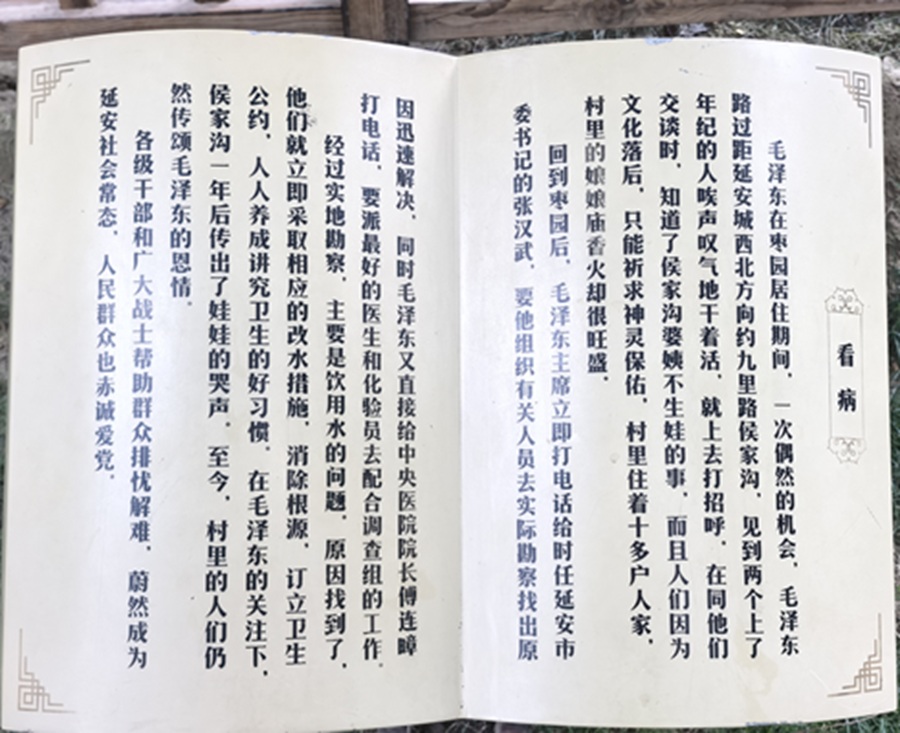 看病
毛泽东在枣园居住期间，一次偶然的机会，毛泽东
路过距延安城西北方向约九里路侯家沟，见到两个上了
年纪的人唉声叹气地干着活，就上去打招呼，在同他们
交谈时，知道了侯家沟婆姨不生娃的事，而且人们因为
文化落后，只能祈求神灵保佑，村里住着十多户人家，
村里的娘娘庙香火却很旺盛。
回到枣园后，毛泽东主席立即打电话给时任延安市
委书记的张汉武，要他组织有关人员去实际勘察找出原
因迅速解决，同时毛泽东又直接给中央医院院长傅连暲
打电话，要派最好的医生和化验员去配合调查组的工作。
经过实地勘察，主要是饮用水的问题，原因找到了，
他们就立即采取相应的改水措施，消除根源，订立卫生
公约，人人养成讲究卫生的好习惯，在毛泽东的关注下，
侯家沟一年后传出了娃娃的哭声，至今，村里的人们仍
然传颂毛泽东的恩情。
各级干部和广大战士帮助群众排忧解难，蔚然成为
延安社会常态，人民群众也赤诚爱党。